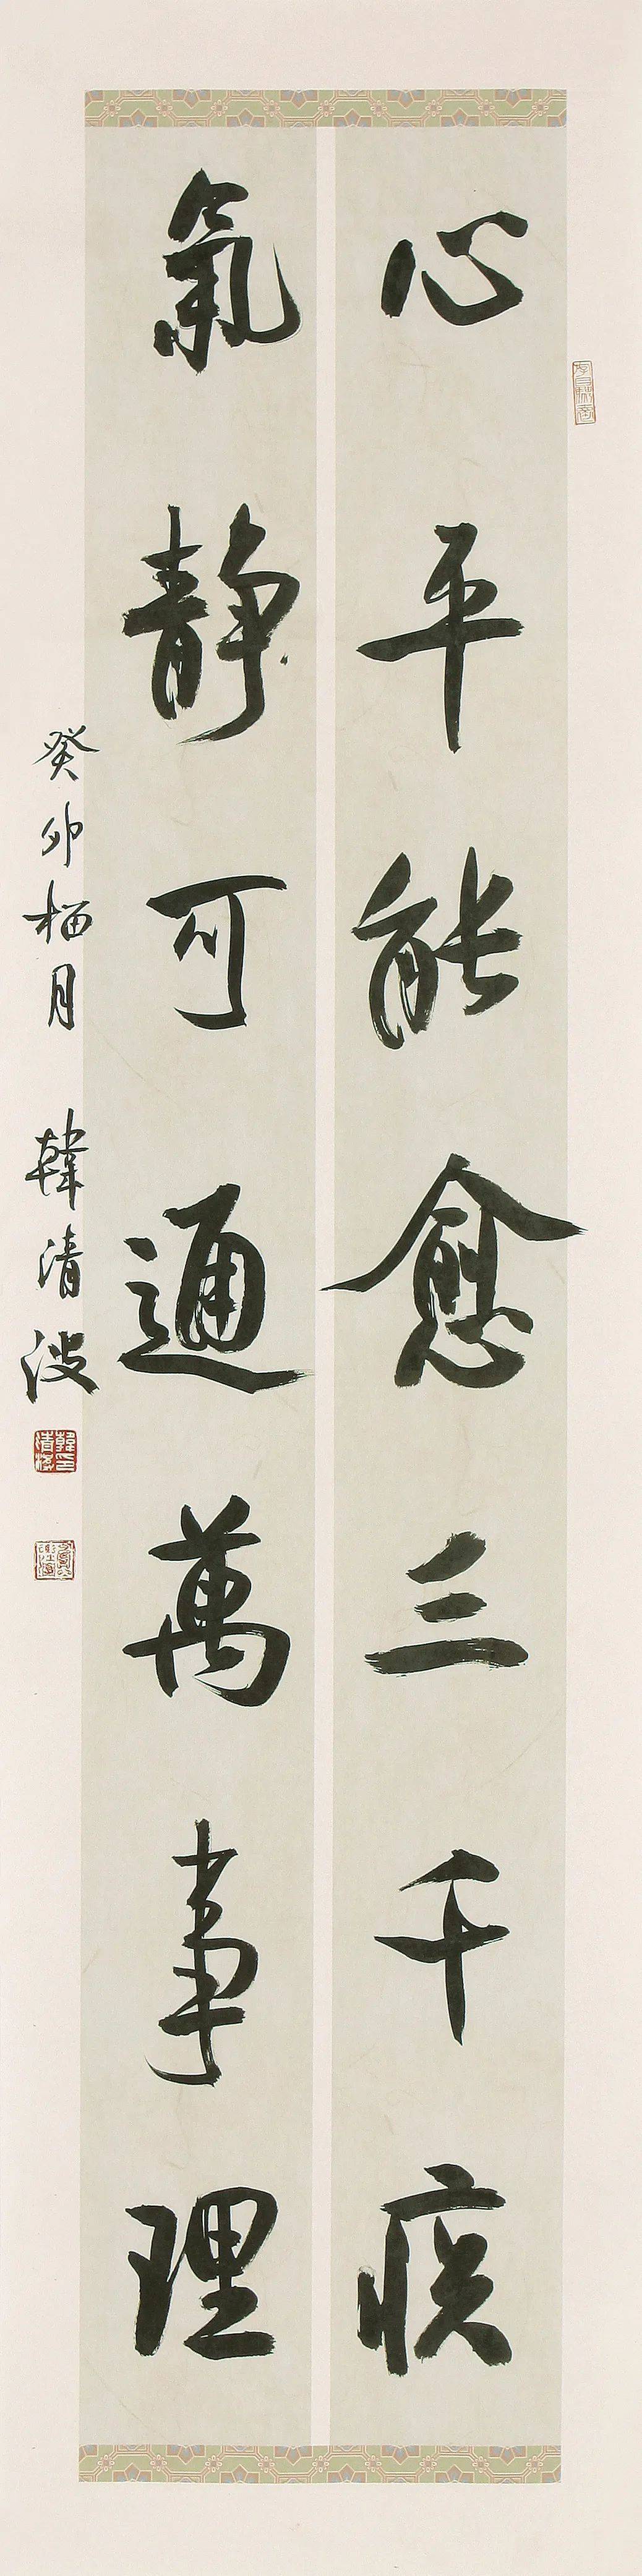 心平能愈三千疾
氣靜可通萬事理
癸卯榴月 韓清波